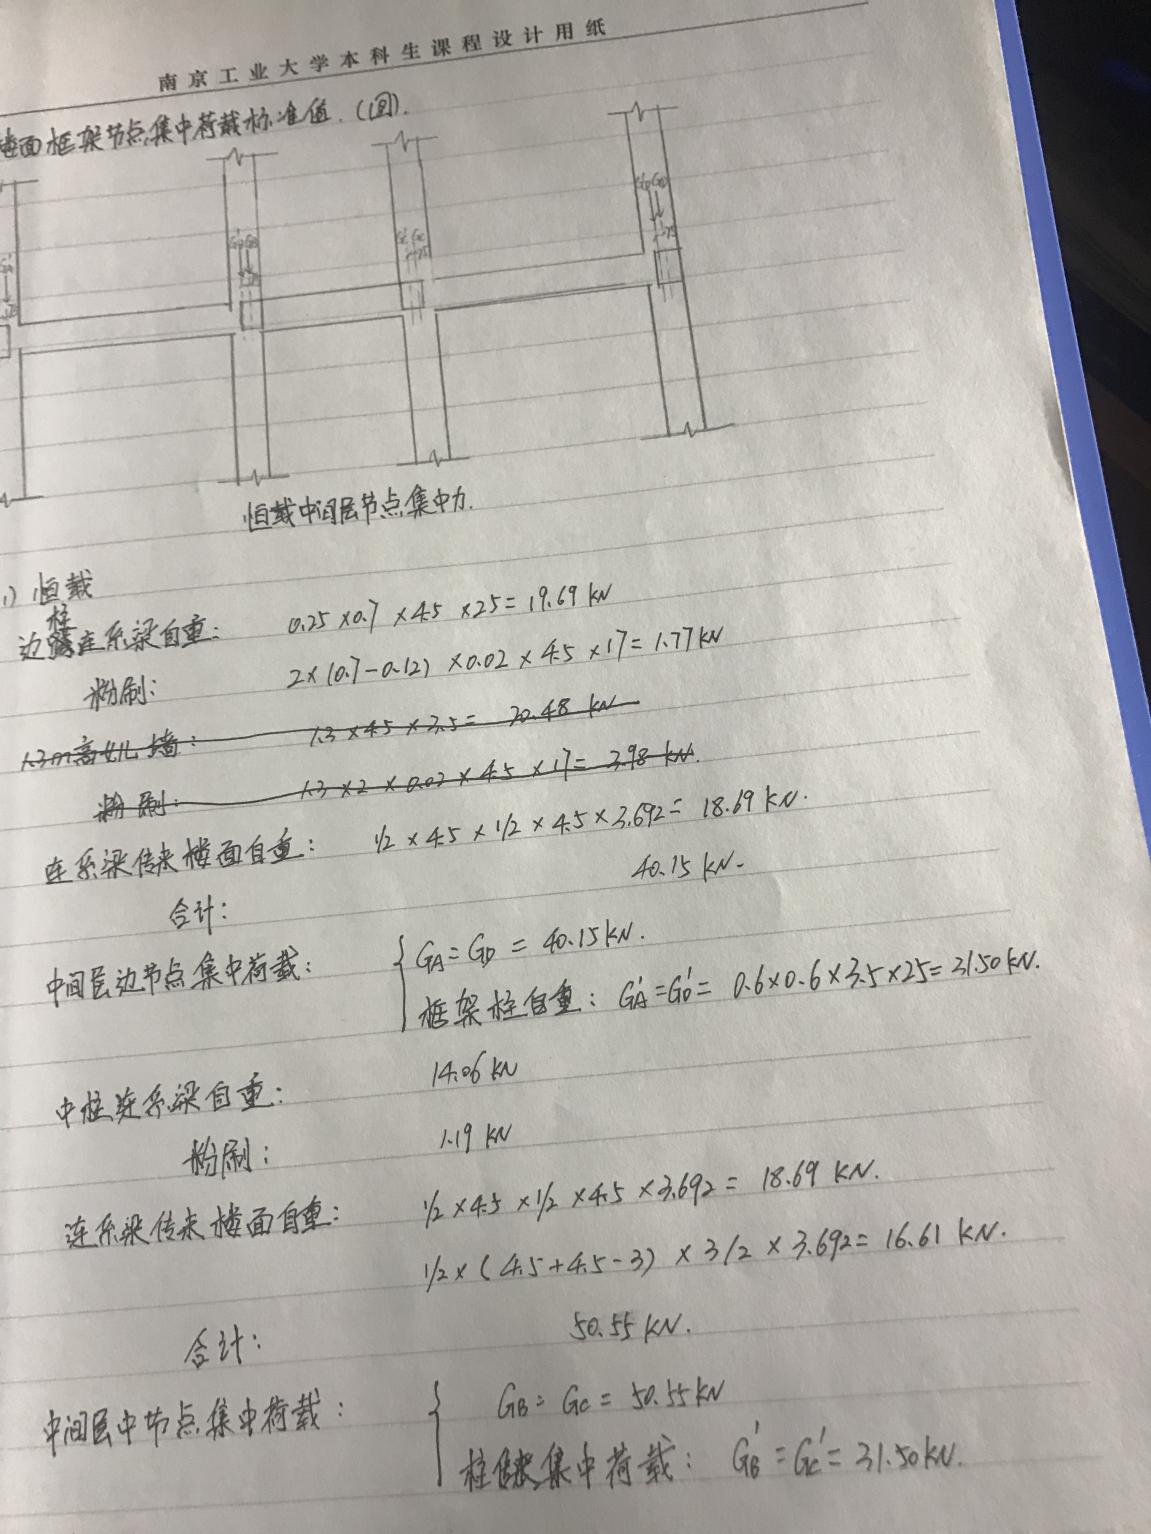 南京工业大学本科生课程设计用纸
楼面框架节点集中荷载标准值.(图).
恒载中间层节点集中力.
1) 恒载
边柱连系梁自重: 0.25×0.7×4.5×25=19.69 kN
粉刷: 2×(0.7-0.12)×0.02×4.5×17=1.77kN
1.3m高女儿墙: 1.3×4.5×3.5= 20.48 kN
粉刷: 1.3×2×0.02×4.5×17= 3.98 kN.
连系梁传来楼面自重: 1/2×4.5×1/2×4.5×3.692= 18.69 kN.
40.15 kN.
合计:
中间层边节点集中荷载: { GA=GD = 40.15kN.
框架柱自重: GA'=GD'= 0.6×0.6×3.5×25=31.50 kN.
中柱连系梁自重: 14.06 kN
粉刷: 1.19 kN
连系梁传来楼面自重: 1/2×4.5×1/2×4.5×3.692= 18.69 kN.
1/2×(4.5+4.5-3)×3/2×3.692=16.61 kN.
合计: 50.55 kN.
中间层中节点集中荷载: { GB= GC = 50.55kN
柱传来集中荷载: GB'=GC'=31.50kN.